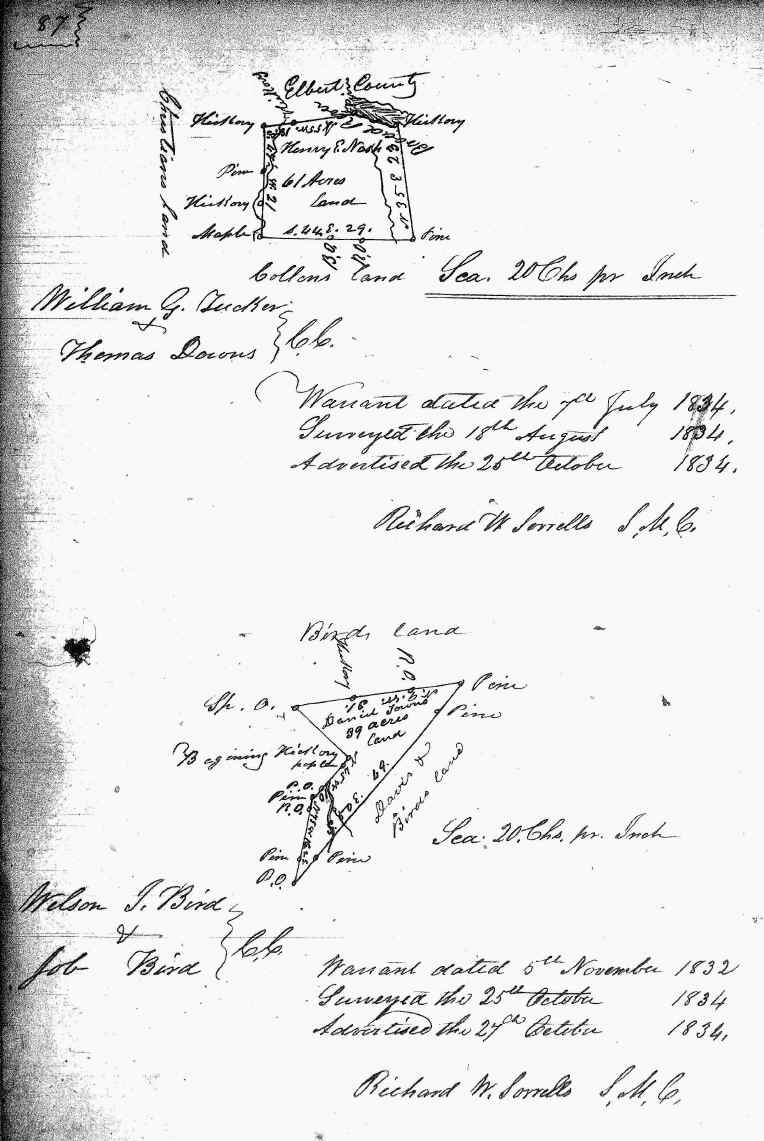 87
Elbert County
Hickory
Hickory
Henry E. Nash
Pine
61 Acres
Land
Hickory
Maple
S. 44 E. 29.
Pine
Christians Land
Collens Land
Sca. 20 Chs pr Inch
William G. Tucker
&
Thomas Downs
C.C.
Warrant dated the 7th July 1834,
Surveyed the 18th August 1834.
Advertised the 25th October 1834.
Richard W Sorrells S. M. C.
Birds Land
Hickory
R. O.
Sp. O.
Pine
Daniel Towns
39 acres
Land
Pine
Begining Hickory
poplar
P. O.
Pine
R. O.
Davis &
Birds land
Sca. 20. Chs. pr. Inch
Pine
Pine
P. O.
Welson J. Bird
&
Job Bird
C.C.
Warrant dated 5th November 1832
Surveyed the 25th October 1834
Advertised the 27th October 1834.
Richard W. Sorrells S. M. C.